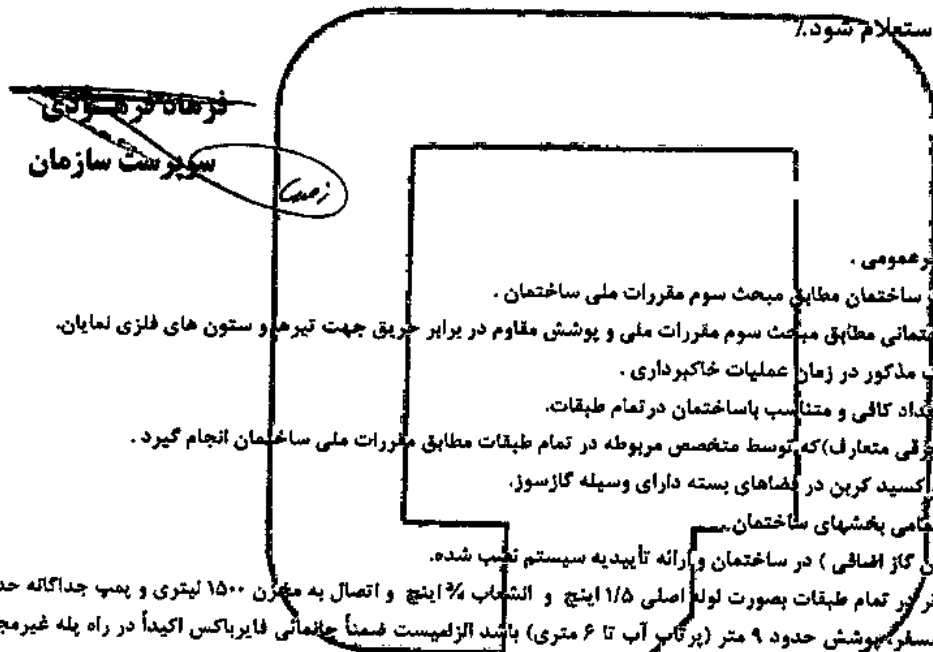 ستعلام شود٪
فرهاد فرهـزادی
سرپرست سازمان
رعمومی .
ساختمان مطابق مبحث سوم مقررات ملی ساختمان .
ختمانی مطابق مبحث سوم مقررات ملی و پوشش مقاوم در برابر حریق جهت تیرها و ستون های فلزی نمایان.
مذکور در زمان عملیات خاکبرداری .
داد کافی و متناسب باساختمان درتمام طبقات.
رقی متعارف)که توسط متخصص مربوطه در تمام طبقات مطابق مقررات ملی ساختمان انجام گیرد .
اکسید کربن در فضاهای بسته دارای وسیله گازسوز.
مامی بخشهای ساختمان.
گاز اضافی ) در ساختمان و ارائه تأییدیه سیستم نصب شده.
تر در تمام طبقات بصورت لوله اصلی ۱/۵ اینچ و انشعاب ¾ اینچ و اتصال به مخزن ۱۵۰۰ لیتری و پمپ جداگانه حد
سفر، پوشش حدود ۹ متر (پرتاب آب تا ۶ متری) باشد الزامیست ضمناً جانمائی فایرباکس اکیداً در راه پله غیرمج